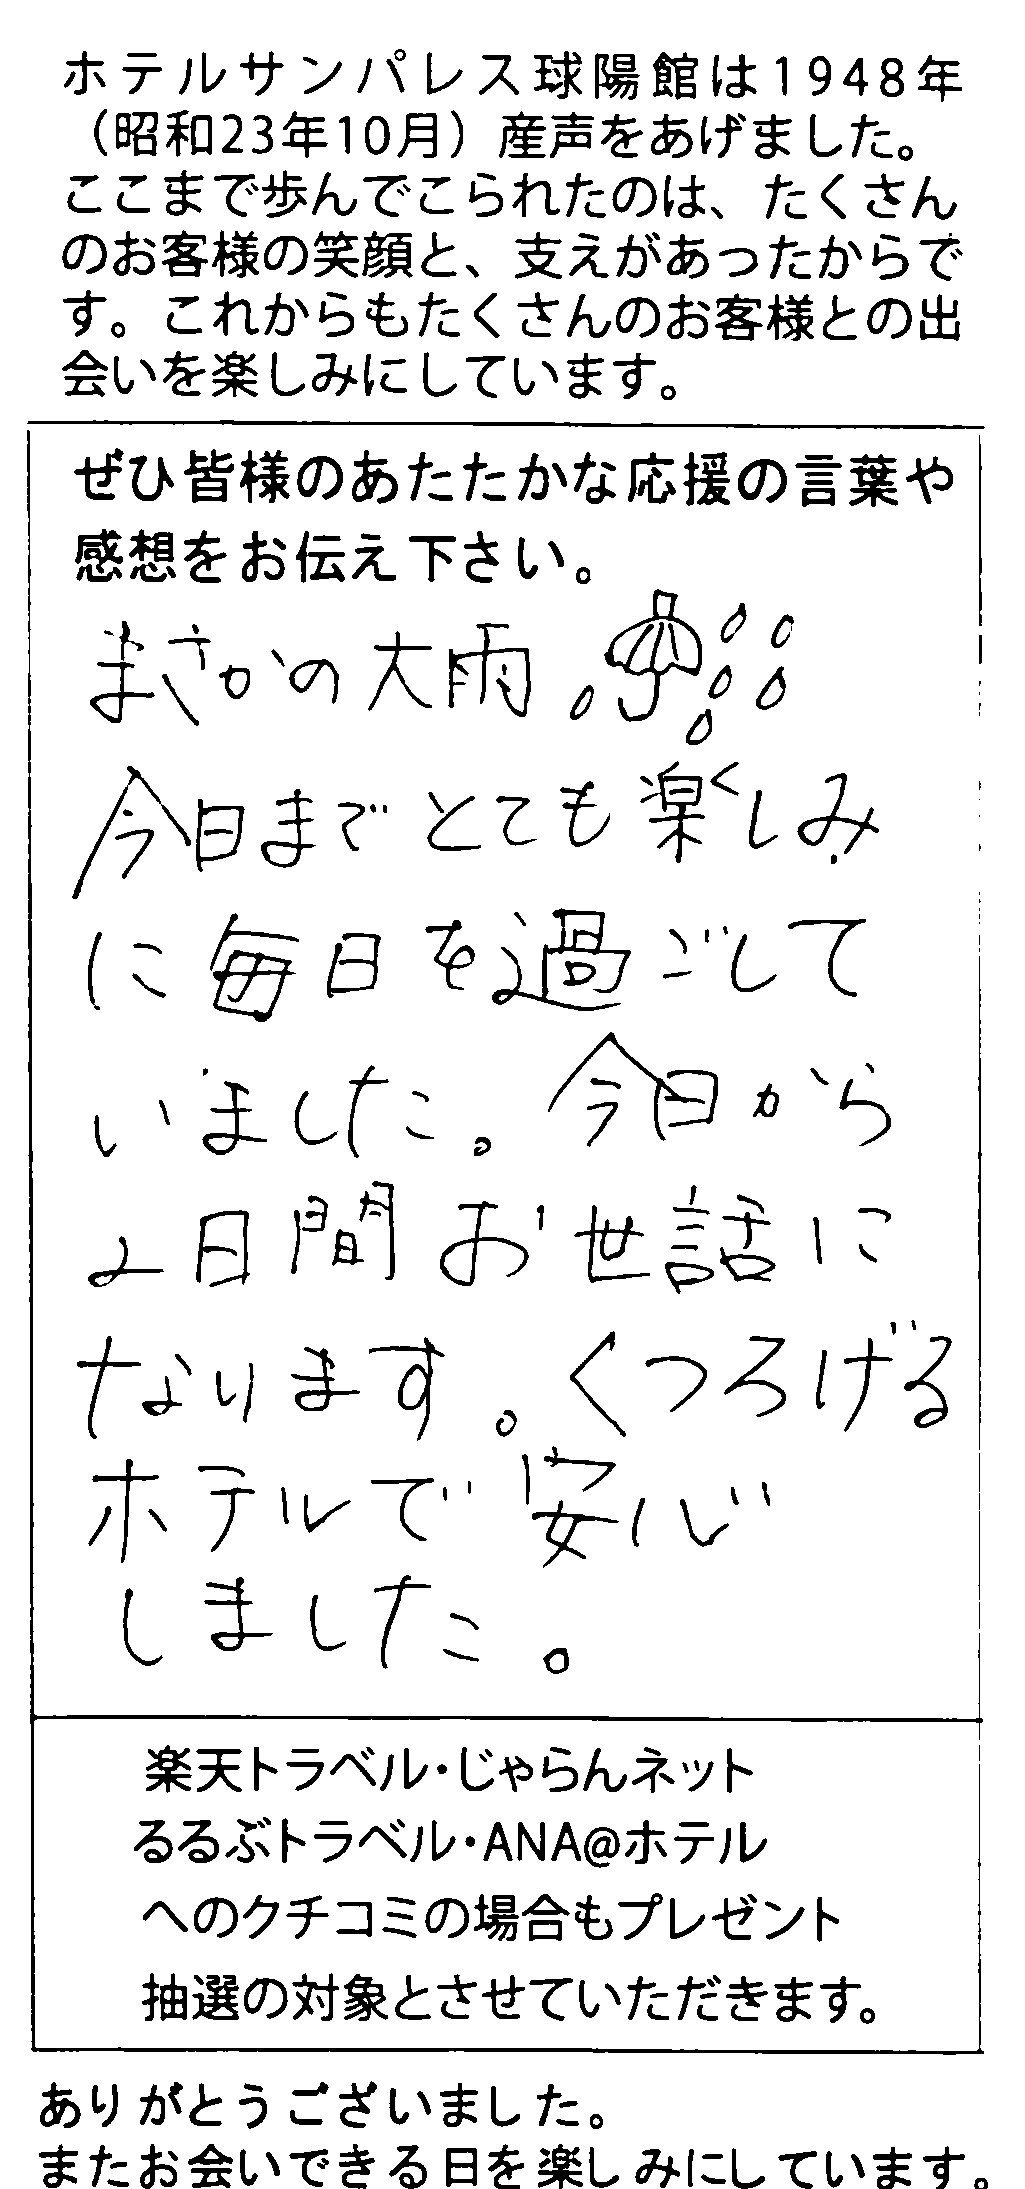 ホテルサンパレス球陽館は1948年
（昭和23年10月）産声をあげました。
ここまで歩んでこられたのは、たくさん
のお客様の笑顔と、支えがあったからで
す。これからもたくさんのお客様との出
会いを楽しみにしています。
ぜひ皆様のあたたかな応援の言葉や
感想をお伝え下さい。
まさかの大雨
今日までとても楽しみ
に毎日を過ごして
いました。今日から
2日間お世話に
なります。くつろげる
ホテルで安心
しました。
楽天トラベル・じゃらんネット
るるぶトラベル・ANA@ホテル
へのクチコミの場合もプレゼント
抽選の対象とさせていただきます。
ありがとうございました。
またお会いできる日を楽しみにしています。